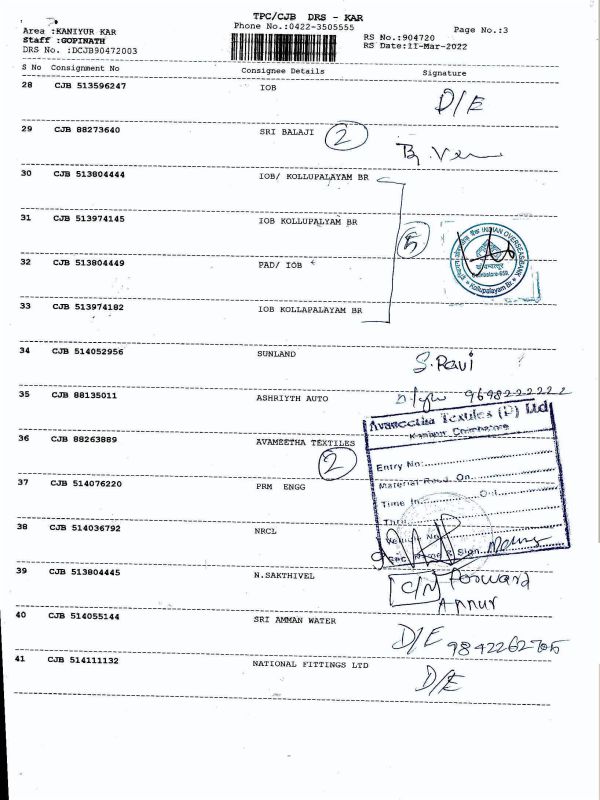 TPC/CJB DRS - KAR
Area :KANIYUR KAR
Phone No.:0422-3505555
Page No.:3
Staff :GOPINATH
RS No.:904720
DRS No. :DCJB90472003
RS Date:11-Mar-2022
S No Consignment No Consignee Details Signature
28 CJB 513596247 IOB D/E
29 CJB 88273640 SRI BALAJI 2
30 CJB 513804444 IOB/ KOLLUPALAYAM BR
31 CJB 513974145 IOB KOLLUPALYAM BR 5
32 CJB 513804449 PAD/ IOB
INDIAN OVERSEAS BANK
Kollupalayam Br.
33 CJB 513974182 IOB KOLLAPALAYAM BR
34 CJB 514052956 SUNLAND S.Ravi
35 CJB 88135011 ASHRIYTH AUTO 9698222222
Avaneetha Textiles (P) Ltd
Kaniyur Coimbatore
36 CJB 88263889 AVAMEETHA TEXTILES 2
Entry No:
37 CJB 514076220 PRM ENGG
Material Recd. On
Time In Out
38 CJB 514036792 NRCL
Vehicle No
Sign
39 CJB 513804445 N.SAKTHIVEL C/N Forward
Annur
40 CJB 514055144 SRI AMMAN WATER D/E 9842262705
41 CJB 514111132 NATIONAL FITTINGS LTD D/E